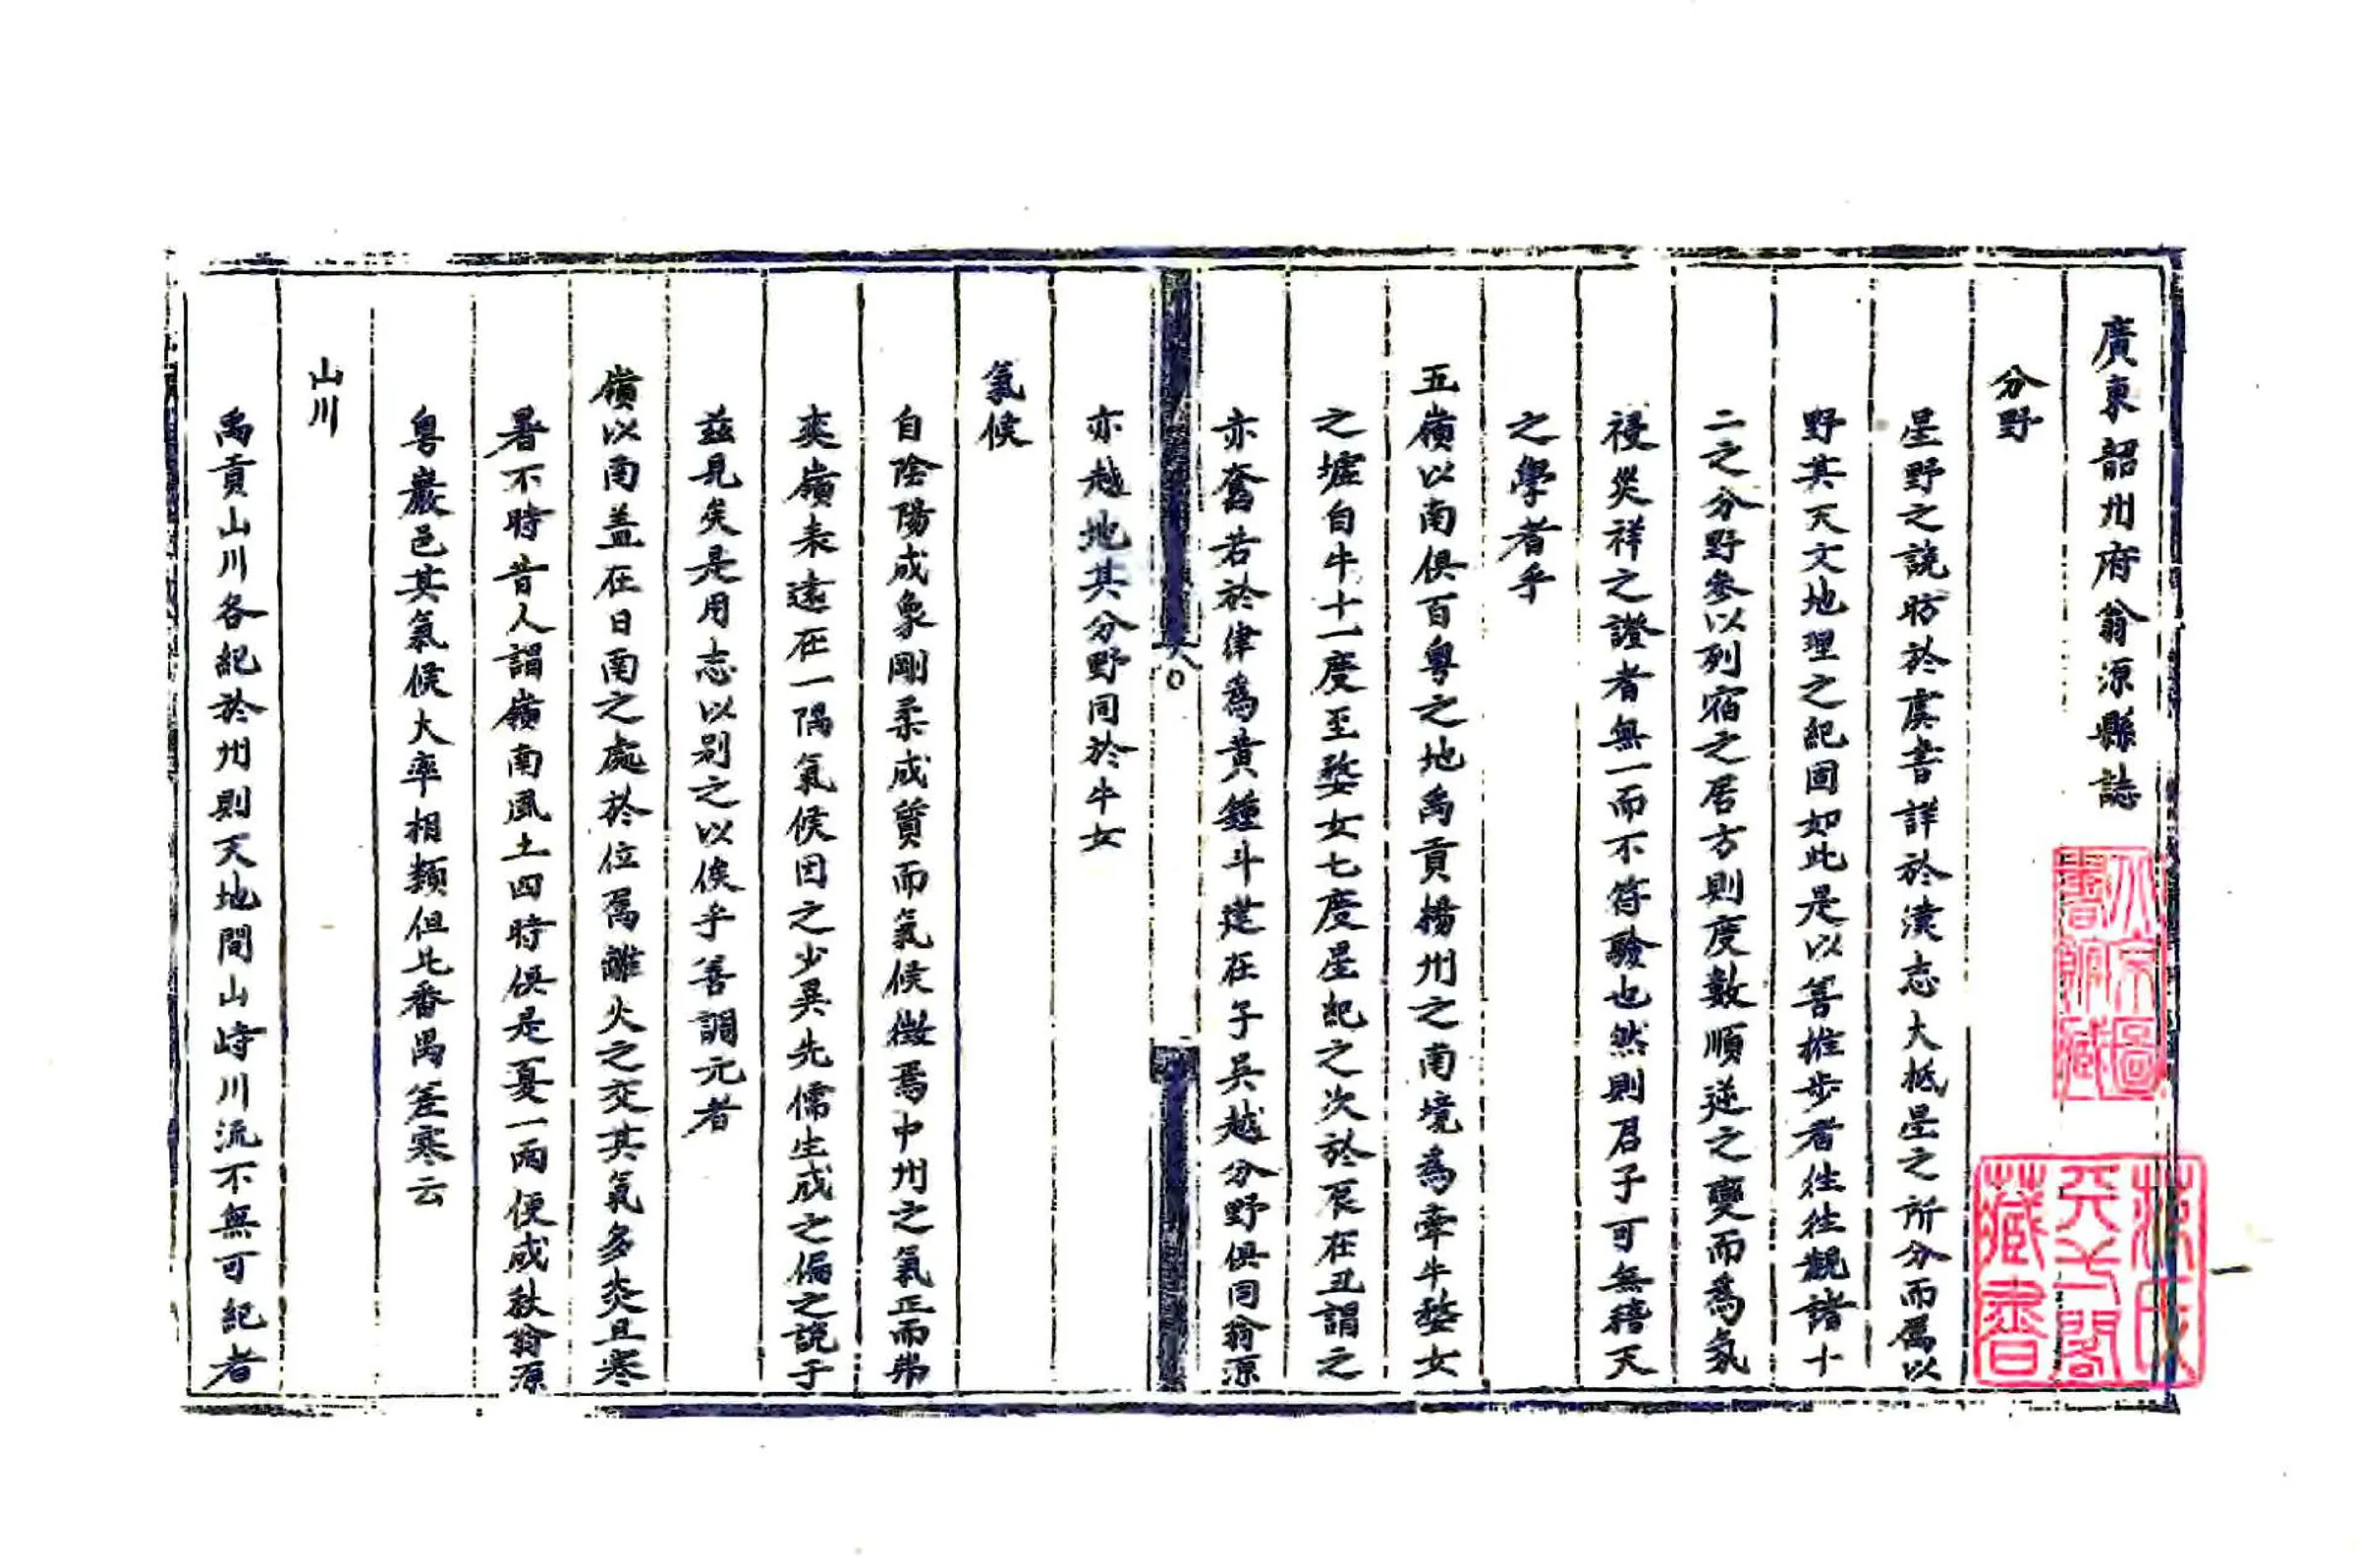 廣東韶州府翁源縣誌
分野
星野之説昉於虞書詳於漢志大抵星之所分而屬以
野其天文地理之紀固如此是以善推步者往往觀諸十
二之分野參以列宿之居方則度數順逆之變而爲氛
祲災祥之證者無一而不符驗也然則君子可無稽天
之學者乎
五嶺以南俱百粤之地禹貢揚州之南境爲牽牛婺女
之墟自牛十一度至婺女七度星紀之次於辰在丑謂之
亦奮若於律爲黄鍾斗建在子吳越分野俱同翁源
亦越地其分野同於牛女
氣候
自陰陽成象剛柔成質而氣候徵焉中州之氣正而弗
爽嶺表遠在一隅氣候因之少異先儒生成之偏之説于
兹見矣是用志以别之以俟乎善調元者
嶺以南盖在日南之處於位爲離火之交其氣多炎且寒
暑不時昔人謂嶺南風土四時俱是夏一雨便成秋翁源
粤巖邑其氣候大率相類但比番禺差寒云
山川
禹貢山川各紀於州則天地間山峙川流不無可紀者
一
藏書